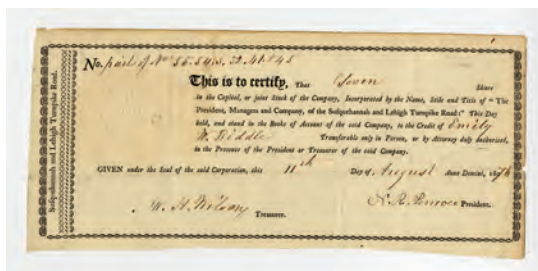 No. part of Nos 56. 54. 53. 52.
This is to certify, That Seven Share
in the Capital, or joint Stock of the Company, Incorporated by the Name, Stile and Title of "The
President, Managers and Company, of the Susquehannah and Lehigh Turnpike Road:" This Day
held, and stand in the Books of Account of the said Company, to the Credit of Emily
W. Biddle Transferable only in Person, or by Attorney duly authorised,
in the Presence of the President or Treasurer of the said Company.
GIVEN under the Seal of the said Corporation, this 11th Day of August Anno Domini,
W. H. Wilson Treasurer. President.
Susquehannah and Lehigh Turnpike Road.